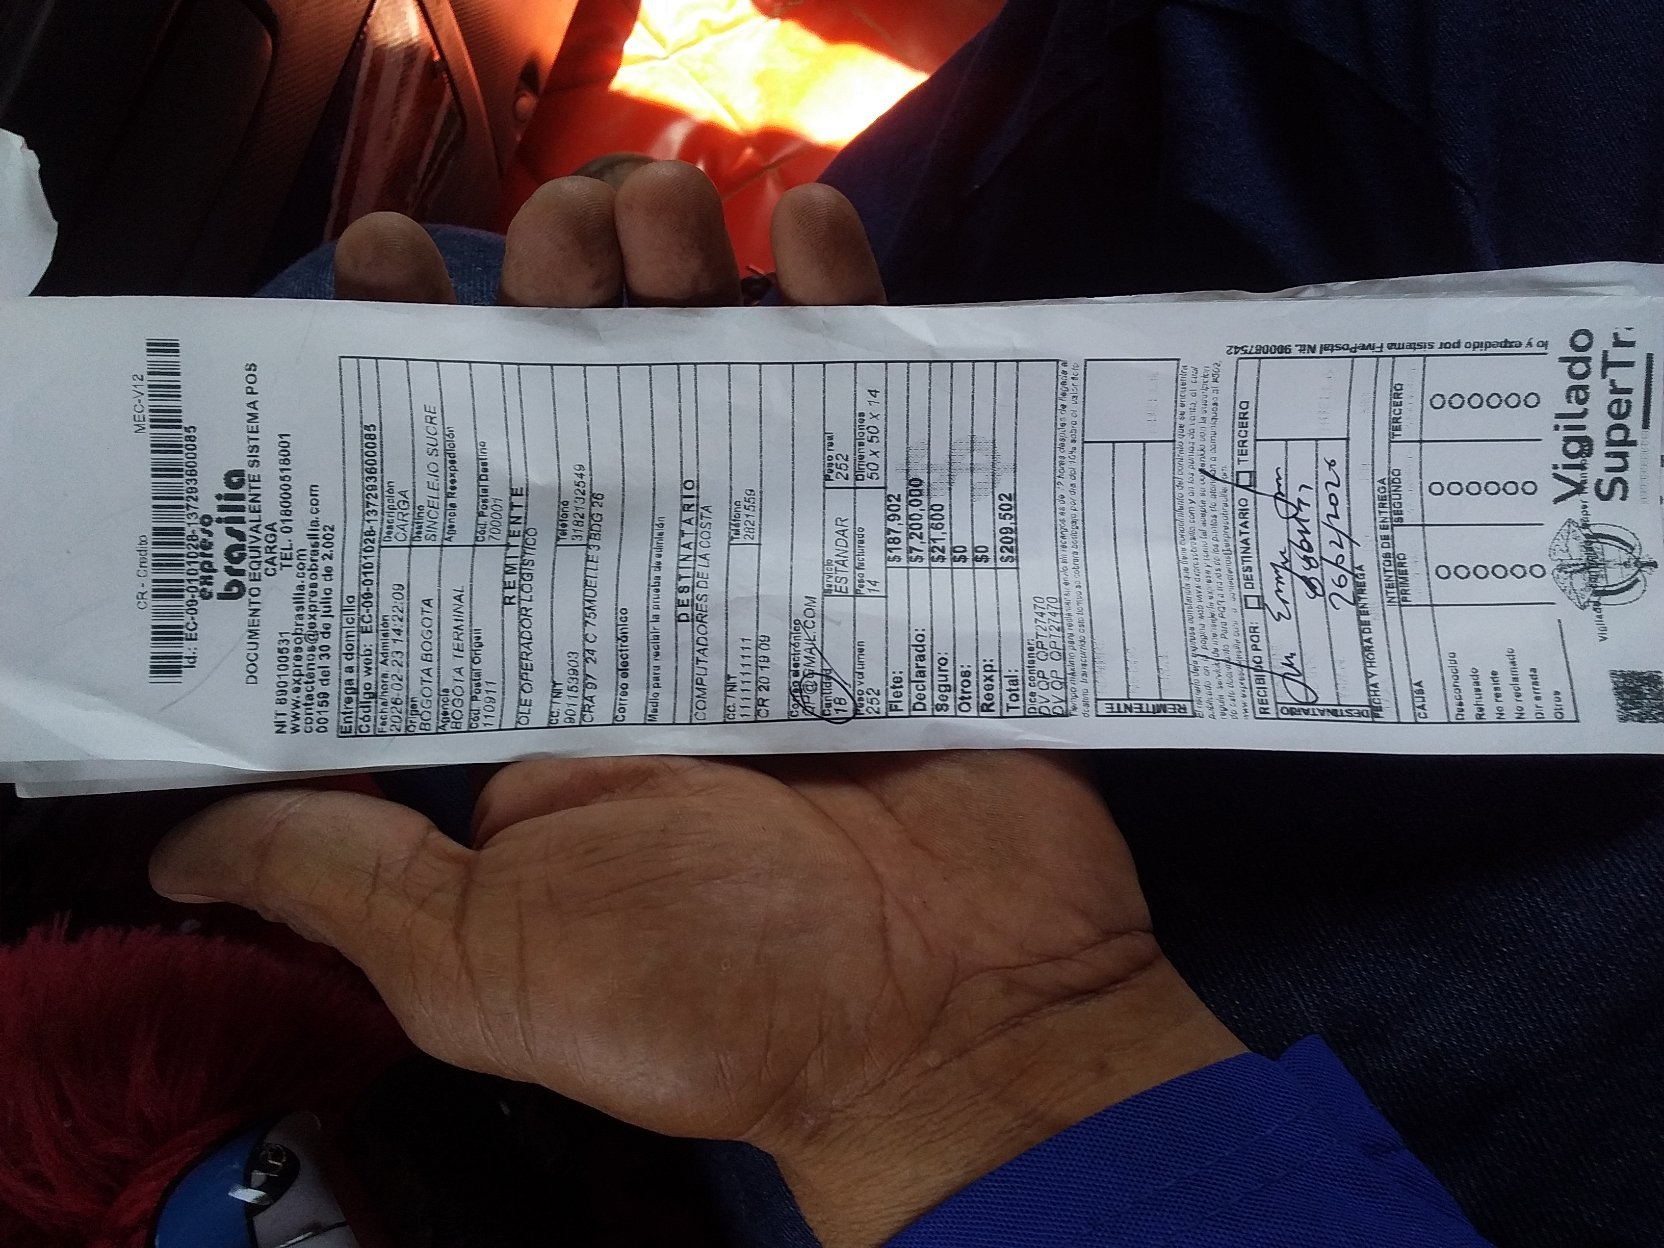 CR- Crédito MEC-V12
Id.: EC-09-0101028-13729360085
expreso
brasilia
DOCUMENTO EQUIVALENTE SISTEMA POS
CARGA
NIT 890100531 TEL. 018000518001
www.expresobrasilia.com
contactenos@expresobrasilia.com
00159 del 30 de julio de 2.002
Entrega a domicilio
Código web: EC-09-0101028-13729360085
Fecha/hora, Admisión Descripción
2026-02-23 14:22:09 CARGA
Origen Destino
BOGOTA BOGOTA SINCELEJO SUCRE
Agencia Agencia Reexpedición
BOGOTA TERMINAL
Cód. Postal Origen Cód. Postal Destino
110911 700001
REMITENTE
OLE OPERADOR LOGISTICO
CC. NIT Teléfono
901153903 3182132549
CRA 97 24 C 75MUELLE 3 BDG 26
Correo electrónico
Medio para recibir la prueba de admisión
DESTINATARIO
COMPUTADORES DE LA COSTA
CC. NIT Teléfono
11111111111 2821559
CR 20 19 09
Correo electrónico
@GMAIL.COM
Cantidad Servicio Peso real
18 ESTANDAR 252
Peso volumen Peso facturado Dimensiones
252 14 50 x 50 x 14
Flete: $187,902
Declarado: $7,200,000
Seguro: $21,600
Otros: $0
Reexp: $0
Total: $209,502
Dice contener:
DV OP OPT27470
DV OP OPT27470
REMITENTE
RECIBIDO POR: DESTINATARIO TERCERO
DESTINATARIO
26/2/2026
FECHA Y HORA DE ENTREGA
INTENTOS DE ENTREGA
CAUSA PRIMERO SEGUNDO TERCERO
Desconocido
Rehusado
No reside
No reclamado
Dir errada
Otros
Vigilado
SuperTr
lo y expedido por sistema FivePostal Nit. 900087542